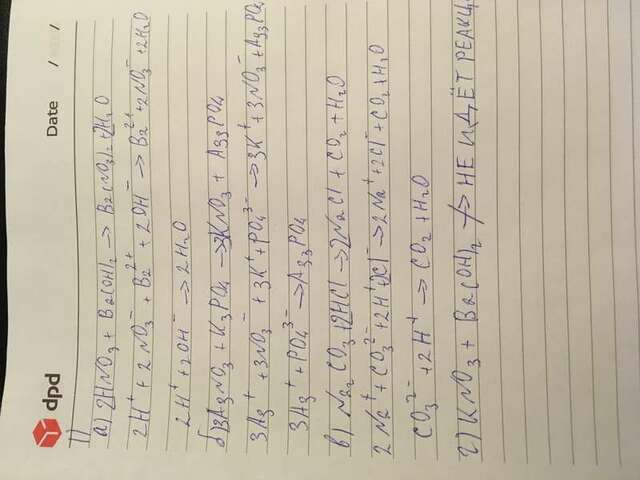 dpd
Date / /
1)
а) 2HNO₃ + Ba(OH)₂ → Ba(NO₃)₂ + 2H₂O
2H⁺ + 2NO₃⁻ + Ba²⁺ + 2OH⁻ → Ba²⁺ + 2NO₃⁻ + 2H₂O
2H⁺ + 2OH⁻ → 2H₂O
б) 3AgNO₃ + K₃PO₄ → 3KNO₃ + Ag₃PO₄
3Ag⁺ + 3NO₃⁻ + 3K⁺ + PO₄³⁻ → 3K⁺ + 3NO₃⁻ + Ag₃PO₄
3Ag⁺ + PO₄³⁻ → Ag₃PO₄
в) Na₂CO₃ + 2HCl → 2NaCl + CO₂ + H₂O
2Na⁺ + CO₃²⁻ + 2H⁺ + 2Cl⁻ → 2Na⁺ + 2Cl⁻ + CO₂ + H₂O
CO₃²⁻ + 2H⁺ → CO₂ + H₂O
г) KNO₃ + Ba(OH)₂ ↛ НЕ ИДЁТ РЕАКЦ